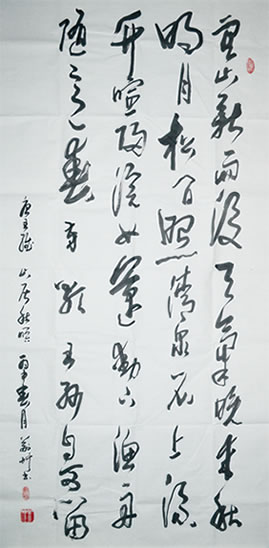 空山新雨後天氣晚來秋
明月松間照清泉石上流
竹喧歸浣女蓮動下漁舟
隨意春芳歇王孫自可留
唐王維山居秋暝 春月 書